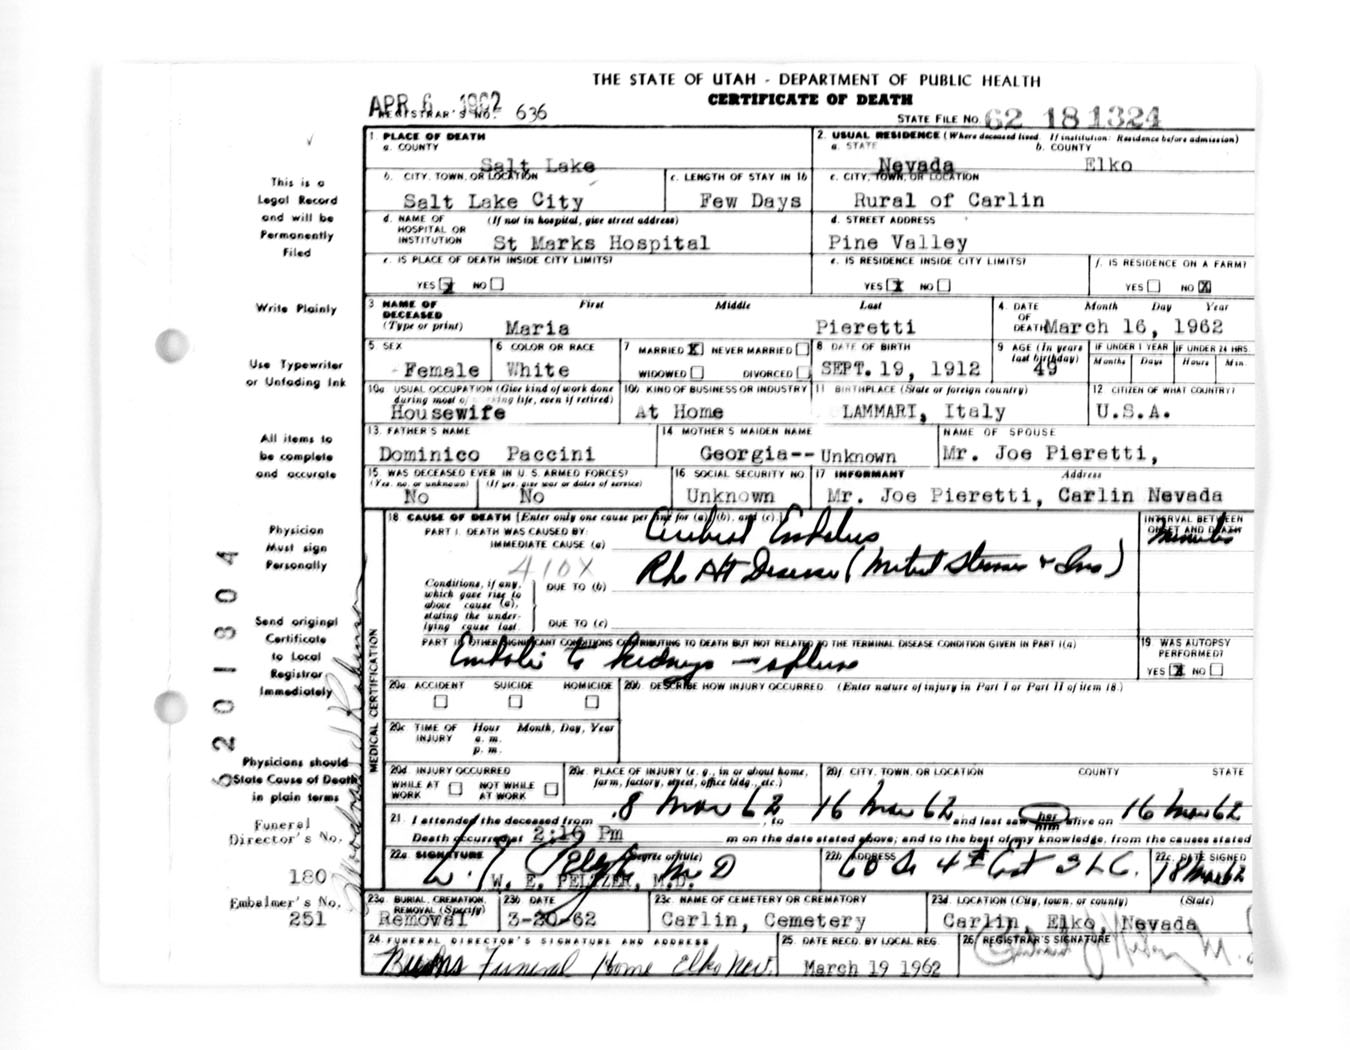 THE STATE OF UTAH - DEPARTMENT OF PUBLIC HEALTH
CERTIFICATE OF DEATH
APR 6 1962
REGISTRAR'S NO. 636
STATE FILE NO. 62 18 1324
1. PLACE OF DEATH
a. COUNTY
Salt Lake
2. USUAL RESIDENCE (Where deceased lived. If institution: Residence before admission)
a. STATE b. COUNTY
Nevada Elko
b. CITY, TOWN, OR LOCATION
Salt Lake City
c. LENGTH OF STAY IN 1b
Few Days
c. CITY, TOWN, OR LOCATION
Rural of Carlin
d. NAME OF HOSPITAL OR INSTITUTION (If not in hospital, give street address)
St Marks Hospital
d. STREET ADDRESS
Pine Valley
e. IS PLACE OF DEATH INSIDE CITY LIMITS?
YES X NO
e. IS RESIDENCE INSIDE CITY LIMITS?
YES X NO
f. IS RESIDENCE ON A FARM?
YES NO X
3 NAME OF DECEASED (Type or print) First Middle Last
Maria Pieretti
4. DATE OF DEATH Month Day Year
March 16, 1962
5 SEX
Female
6 COLOR OR RACE
White
7 MARRIED X NEVER MARRIED
WIDOWED DIVORCED
8 DATE OF BIRTH
SEPT. 19, 1912
9 AGE (In years last birthday)
49
IF UNDER 1 YEAR IF UNDER 24 HRS.
Months Days Hours Min.
10a USUAL OCCUPATION (Give kind of work done during most of working life, even if retired)
Housewife
10b. KIND OF BUSINESS OR INDUSTRY
At Home
11 BIRTHPLACE (State or foreign country)
LAMMARI, Italy
12 CITIZEN OF WHAT COUNTRY?
U.S.A.
13. FATHER'S NAME
Dominico Paccini
14 MOTHER'S MAIDEN NAME
Georgia--Unknown
NAME OF SPOUSE
Mr. Joe Pieretti,
15 WAS DECEASED EVER IN U.S. ARMED FORCES?
(Yes, no, or unknown) (If yes, give war or dates of service)
No No
16 SOCIAL SECURITY NO.
Unknown
17 INFORMANT Address
Mr. Joe Pieretti, Carlin Nevada
18. CAUSE OF DEATH [Enter only one cause per line for (a), (b), and (c).]
PART I. DEATH WAS CAUSED BY:
IMMEDIATE CAUSE (a)
Cerebral Embolus
INTERVAL BETWEEN ONSET AND DEATH
Minutes
410X
Conditions, if any, which gave rise to above cause (a), stating the underlying cause last.
DUE TO (b)
Rhe Ht Disease (Mitral Stenosis + Ins)
DUE TO (c)
PART II. OTHER SIGNIFICANT CONDITIONS CONTRIBUTING TO DEATH BUT NOT RELATED TO THE TERMINAL DISEASE CONDITION GIVEN IN PART I(a)
Emboli to kidneys - spleen
19 WAS AUTOPSY PERFORMED?
YES X NO
MEDICAL CERTIFICATION
20a ACCIDENT SUICIDE HOMICIDE
20b DESCRIBE HOW INJURY OCCURRED (Enter nature of injury in Part I or Part II of item 18.)
20c TIME OF INJURY Hour Month, Day, Year
a. m.
p. m.
20d INJURY OCCURRED
WHILE AT WORK NOT WHILE AT WORK
20e. PLACE OF INJURY (e. g., in or about home, farm, factory, street, office bldg., etc.)
20f. CITY, TOWN, OR LOCATION COUNTY STATE
21. I attended the deceased from 8 Mar 62, to 16 Mar 62 and last saw her him alive on 16 Mar 62
Death occurred at 2:10 Pm m on the date stated above; and to the best of my knowledge, from the causes stated
22a SIGNATURE (Degree or title)
W. E. Peltzer MD
W. E. PELTZER, M.D.
22b ADDRESS
60 So 4th East SLC.
22c. DATE SIGNED
18 Mar 62
23a. BURIAL, CREMATION, REMOVAL (Specify)
Removal
23b DATE
3-20-62
23c. NAME OF CEMETERY OR CREMATORY
Carlin, Cemetery
23d. LOCATION (City, town, or county) (State)
Carlin, Elko, Nevada
24. FUNERAL DIRECTOR'S SIGNATURE AND ADDRESS
Burns Funeral Home Elko Nev.
25. DATE RECD. BY LOCAL REG.
March 19 1962
26. REGISTRAR'S SIGNATURE
This is a
Legal Record
and will be
Permanently
Filed
Write Plainly
Use Typewriter
or Unfading Ink
All items to
be complete
and accurate
Physician
Must sign
Personally
Send original
Certificate
to Local
Registrar
Immediately
Physicians should
State Cause of Death
in plain terms
Funeral
Director's No.
180
Embalmer's No.
251